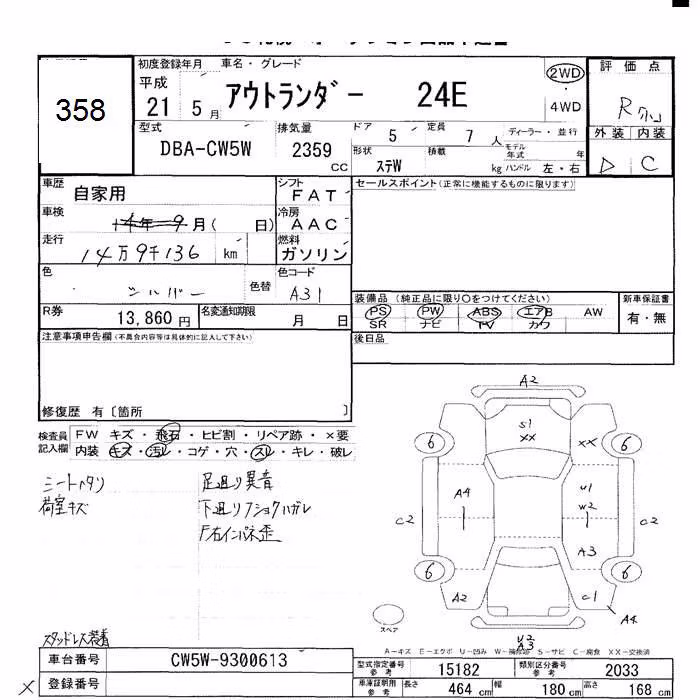 358
初度登録年月 車名・グレード
平成 21 5月 アウトランダー 24E
2WD
4WD
評価点
R
外装 内装
D C
型式 排気量 ドア 定員 ディーラー・並行
DBA-CW5W 2359 CC 5 7 人 モデル年式 年
形状 積載 kg ハンドル 左・右
ステW
車歴 自家用 シフト FAT
車検 年 9月( 日) 冷房 AAC
走行 14万9千136 km 燃料 ガソリン
色 シルバー 色替 色コード A31
R券 13,860円 名変通知期限 月 日
セールスポイント(正常に機能するものに限ります)
装備品 (純正品に限り○をつけてください) 新車保証書
PS PW ABS エアB AW 有・無
SR ナビ TV カワ
後日品
注意事項申告欄(不具合内容等は具体的に記入して下さい)
修復歴 有〔箇所 〕
検査員記入欄 FW キズ・飛石・ヒビ割・リペア跡・×要
内装 キズ・汚レ・コゲ・穴・スレ・キレ・破レ
シートヘタリ 足廻り異音
荷室キズ 下廻り
スタッドレス装着
A2
S1
XX
XX
6 6
A4 U1
W2
C2 C2
A3
6 6
A2 C1
A4
スペア
A3
A-キズ E-エクボ U-凹み W-補修跡 S-サビ C-腐食 XX-交換済
車台番号 CW5W-9300613
登録番号
型式指定番号 参考 15182 類別区分番号 参考 2033
車庫証明用 参考 長さ 464 cm 幅 180 cm 高さ 168 cm